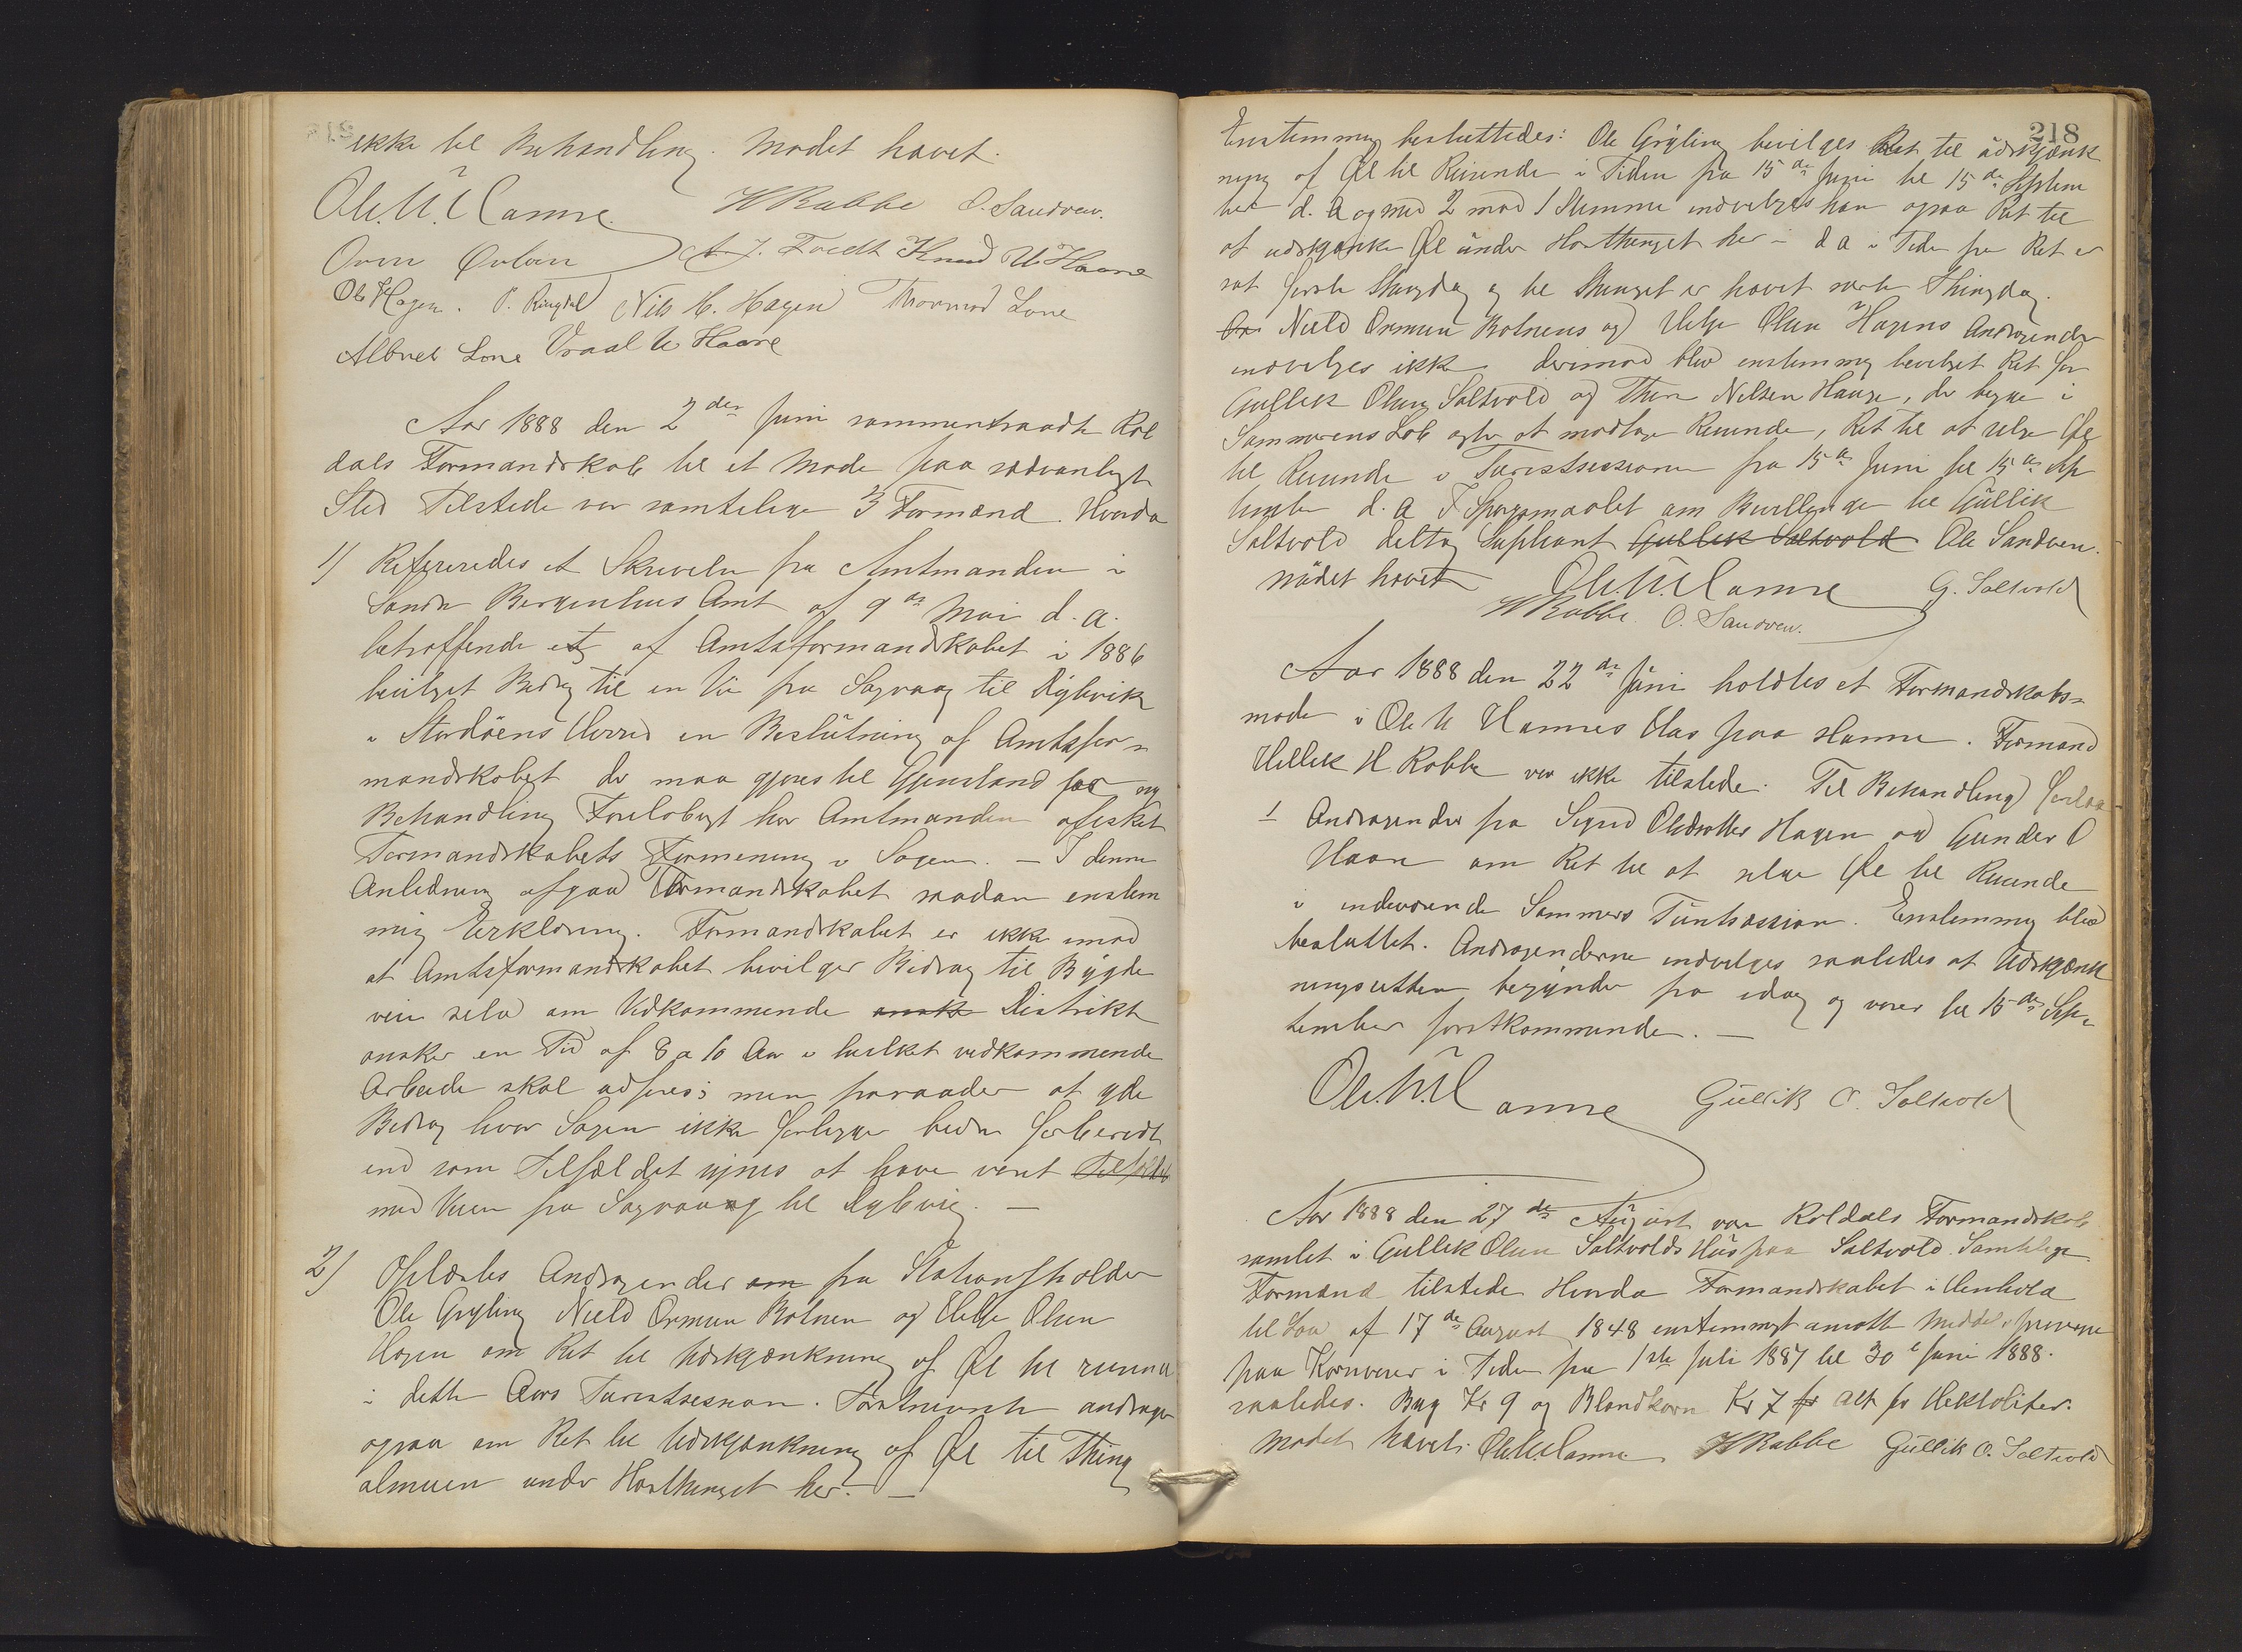 ikke til Behandling. Mødet hævet.
Ole. N. Hamre. H Rabbe O. Sandven.
Orm Øvlven A. J. Foedt Knud N. Haare
Ole Hagen. P. Ringdal Nils H. Hagen Thormod Lone
Albret Lone Vraal N Haare
Aar 1888 den 2den Juni sammentraadte Røl
dals Formandskab til et Møde paa sædvanligt
Sted Tilstede var samtelige 3 Formænd. Hvorda
1) Refereredes et Skrivelse fra Amtmanden i
Søndre Bergenhus Amt af 9de Mai d. a.
betræffende et af Amtsformandskabet i 1886
bevilget Bidrag til en Vei fra Sagvaag til Dybvik
i Stordøens Herred en Beslutning af Amtsfor-
mandskabet der maa gjøres til Gjenstand for ny
Behandling Foreløbigt har Amtmanden afæsket
Formandskabets Formening i Sagen. — I denne
Anledning afgav Formandskabet saadan enstem
mig Erklæring. Formandskabet er ikke imod
at Amtsformandskabet bevilger Bidrag til Bygde
veie selv om Vedkommende ønsk Distrikt
ønsker en Tid af 8 a 10 Aar i hvilket vedkommende
Arbeide skal udføres; men fraraader at yde
Bidrag hvor Sagen ikke forligger bedre forberedt
end som Tilfældet synes at have været Tilfældet
med Veien fra Sagvaag til Dybvig. —
2) Oplæstes Andragender om fra Stationsholder
Ole Gryting Nield Ormsen Botnen og Helge Olsen
Hagen om Ret til Udskjænkning af Øl til reisende
i dette Aars Turistsesson. Førstnævnte andrager
ogsaa om Ret til Udskjænkning af Øl til Thing
almuen under Høstthinget her. —
218
Enstemmig besluttedes: Ole Gryting bevilges Ret til udskjænk
ning af Øl til Reisende i Tiden fra 15de Juni til 15de Septem
ber d. a og med 2 mod 1 Stemme indvilges han ogsaa Ret til
at udskjænke Øl under Høstthinget her i d a i Tiden fra Ret er
sat første Thingdag og til Thinget er hævet sidste Thingdag.
Or Nield Ormsen Botnens og Helge Olsen Hagens Andragender
indvilges ikke derimod blev enstemmig bevilget Ret for
Gullik Olsen Saltvold og Thore Nelsen Hauge, der begge i
Sommerens Løb agter at modtage Reisende, Ret til at selge Øl
til Reisende i Turistsessionen fra 15de Juni til 15de Sep
tember d. a I Spørgsmaalet om Bevillingen til Gullik
Saltvold deltog Supleant Gullik Saltvold Ole Sandven.
Mødet hævet Ole. N. Hamre G. Saltvold
H Rabbe. O. Sandven.
Aar 1888 den 22de Juni holdtes et Formandskabs-
møde i Ole N Hamres Hus paa Hamre. Formand
Hellik H Rabbe var ikke tilstede. Til Behandling forlaa
1 Andragender fra Sigrid Olsdatter Hagen og Gunder O
Haare om Ret til at selge Øl til Reisende
i indeværende Sommers Turistsession. Enstemmig blev
besluttet. Andragenderne indvilges saaledes at Udskjænk
ningsretten begynder fra idag og varer til 15de Sep-
tember førstkommende. —
Ole. N. Hamre Gullik O. Saltvold
Aar 1888 den 27de August var Røldals Formandskab
samlet i Gullik Olsen Saltvolds Hus paa Saltvold. Samtelige
Formænd tilstede Hvorda Formandskabet i Henhold
til Lov af 17de August 1848 enstemmigt ansatte Middelpriserne
paa Kornvarer i Tiden fra 1ste Juli 1887 til 30te Juni 1888.
saaledes. Byg Kr 9 og Blandkorn Kr 7 pr alt pr Hektoliter.
Mødet hævet. Ole. N. Hamre H Rabbe Gullik O. Saltvold